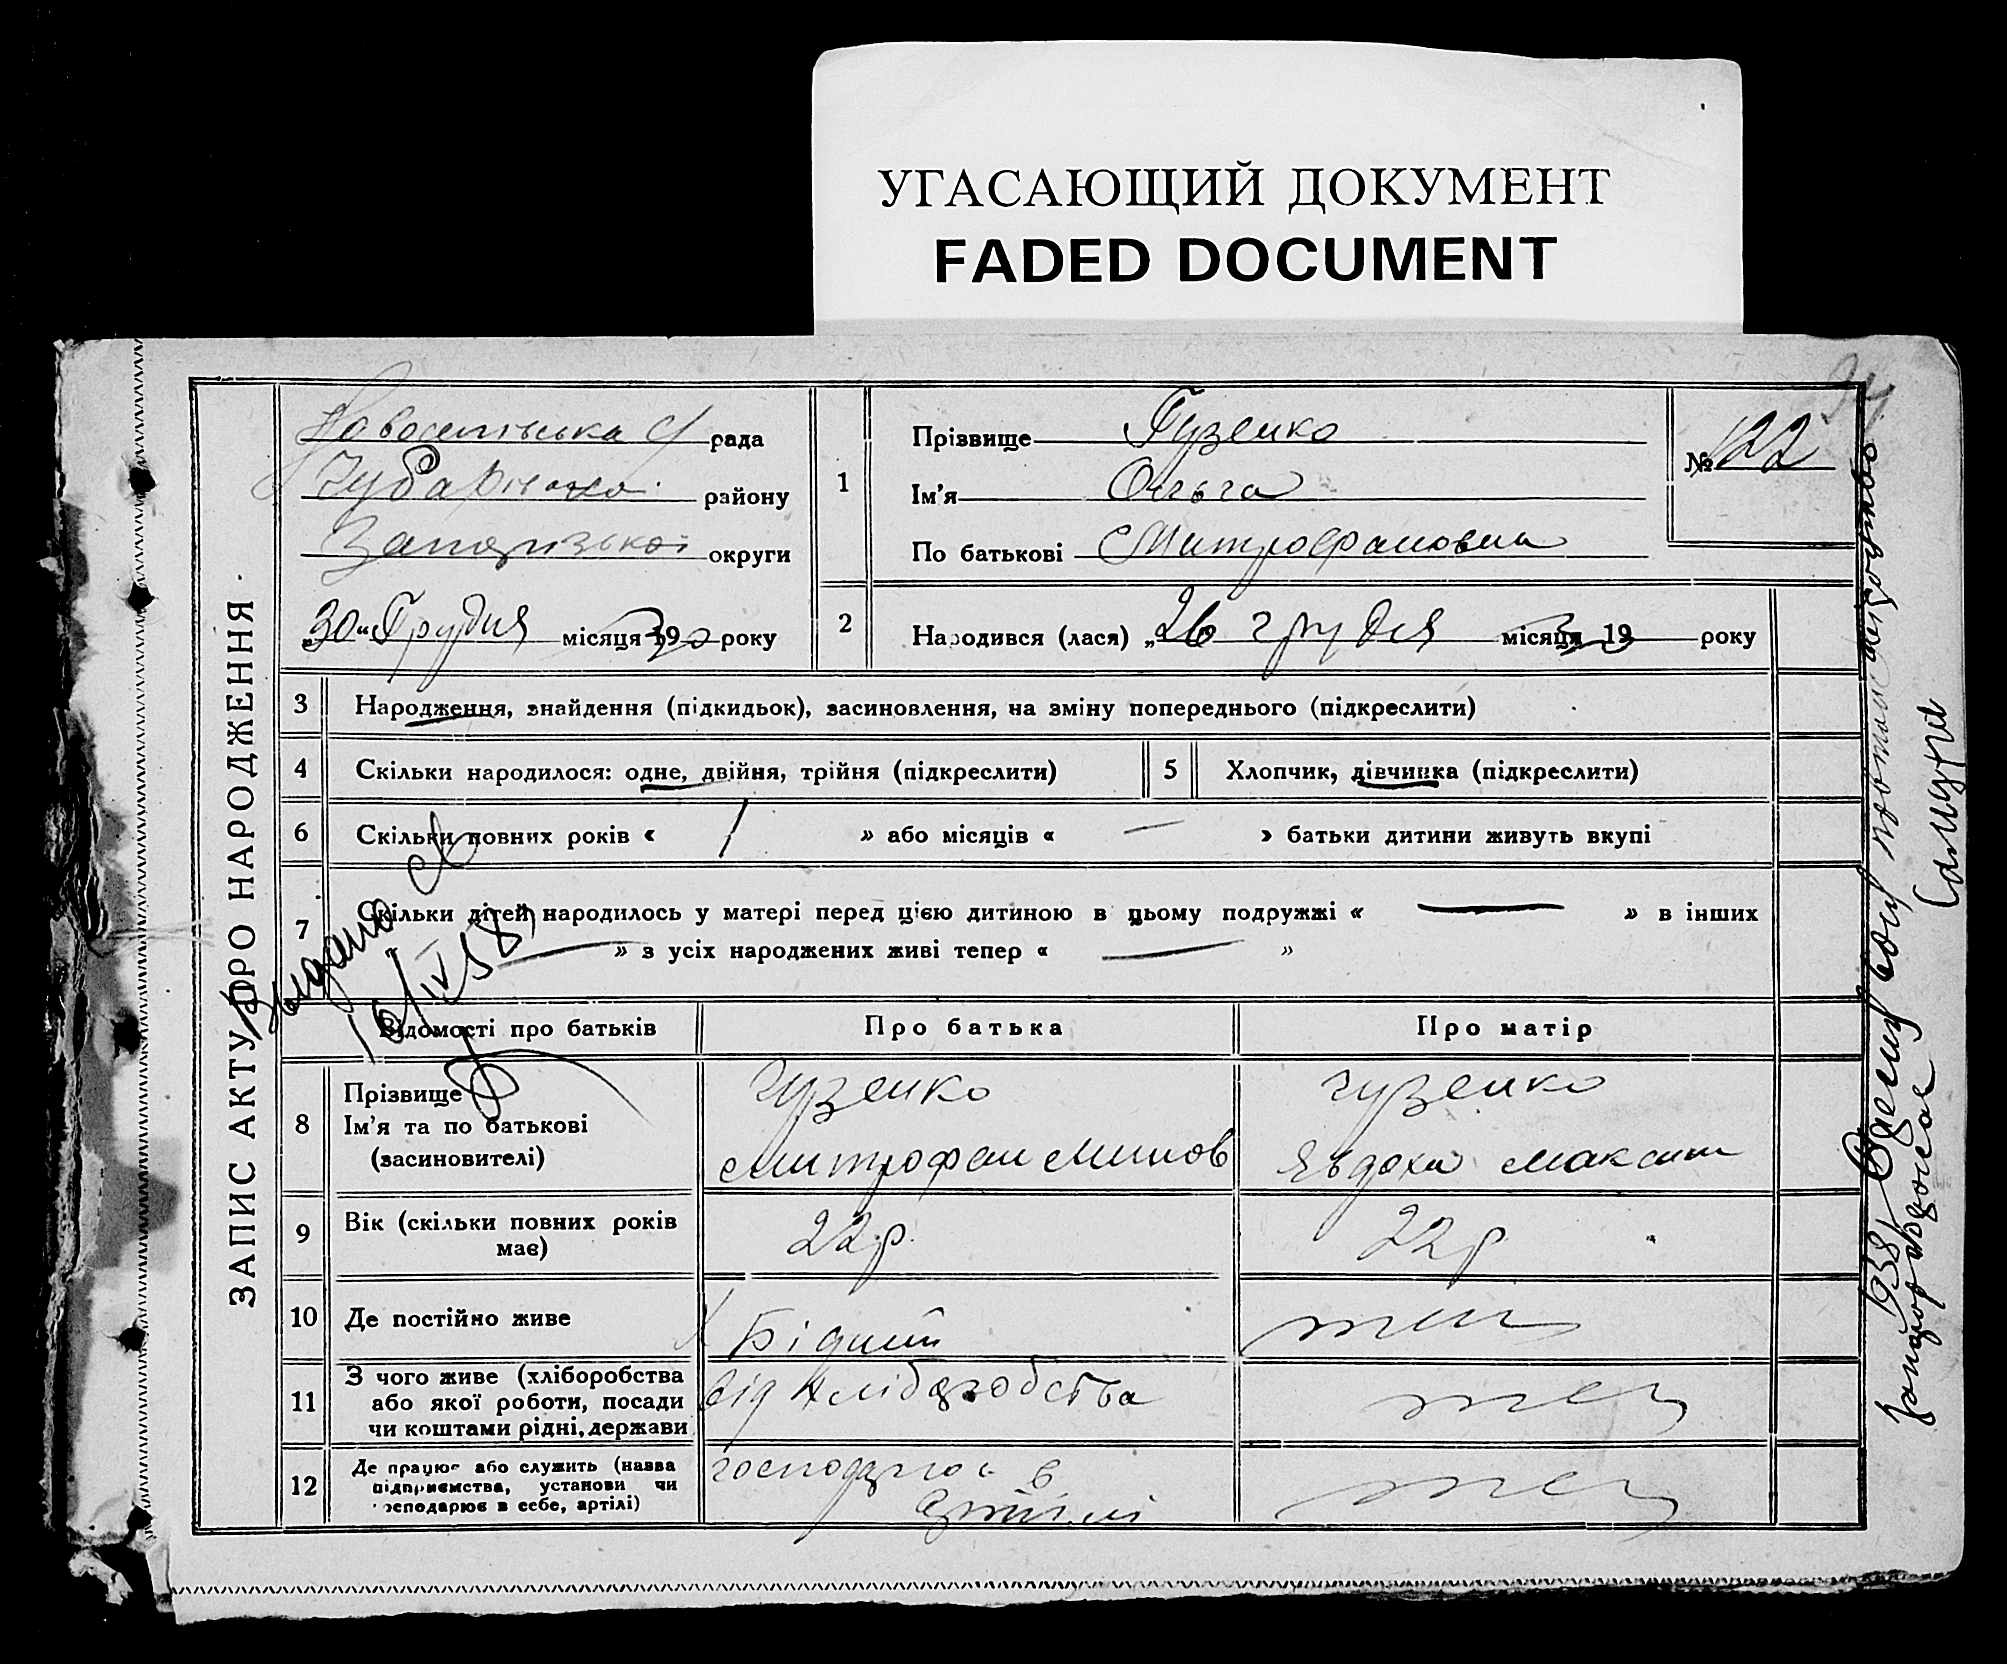 УГАСАЮЩИЙ ДОКУМЕНТ
FADED DOCUMENT
ЗАПИС АКТУ ПРО НАРОДЖЕННЯ
рада
району
Запорізької округи
„30“ Грудня місяця 1930 року
№ 122
1
Прізвище Гузенко
Ім'я Ольга
По батькові Митрофановна
2
Народився (лася) „26 грудня місяця 1930 року
3 Народження, знайдення (підкидьок), засиновлення, на зміну попереднього (підкреслити)
4 Скільки народилося: одне, двійня, трійня (підкреслити)
5 Хлопчик, дівчинка (підкреслити)
6 Скільки повних років « 1 » або місяців « — » батьки дитини живуть вкупі
7 Скільки дітей народилось у матері перед цією дитиною в цьому подружжі « — » в інших
— » з усіх народжених живі тепер « — »
Відомості про батьків Про батька Про матір
8 Прізвище
Ім'я та по батькові
(засиновителі)
Гузенко
Митрофан Минов
Гузенко
Явдоха Максим
9 Вік (скільки повних років
має)
22 р.
22 р
10 Де постійно живе
11 З чого живе (хліборобства
або якої роботи, посади
чи коштами рідні, держави
від хліборобства
12 Де працює або служить (назва
підприємства, установи чи
господарює в себе, артілі)
господарює в
артілі
Выдано
16/IV 58
1958